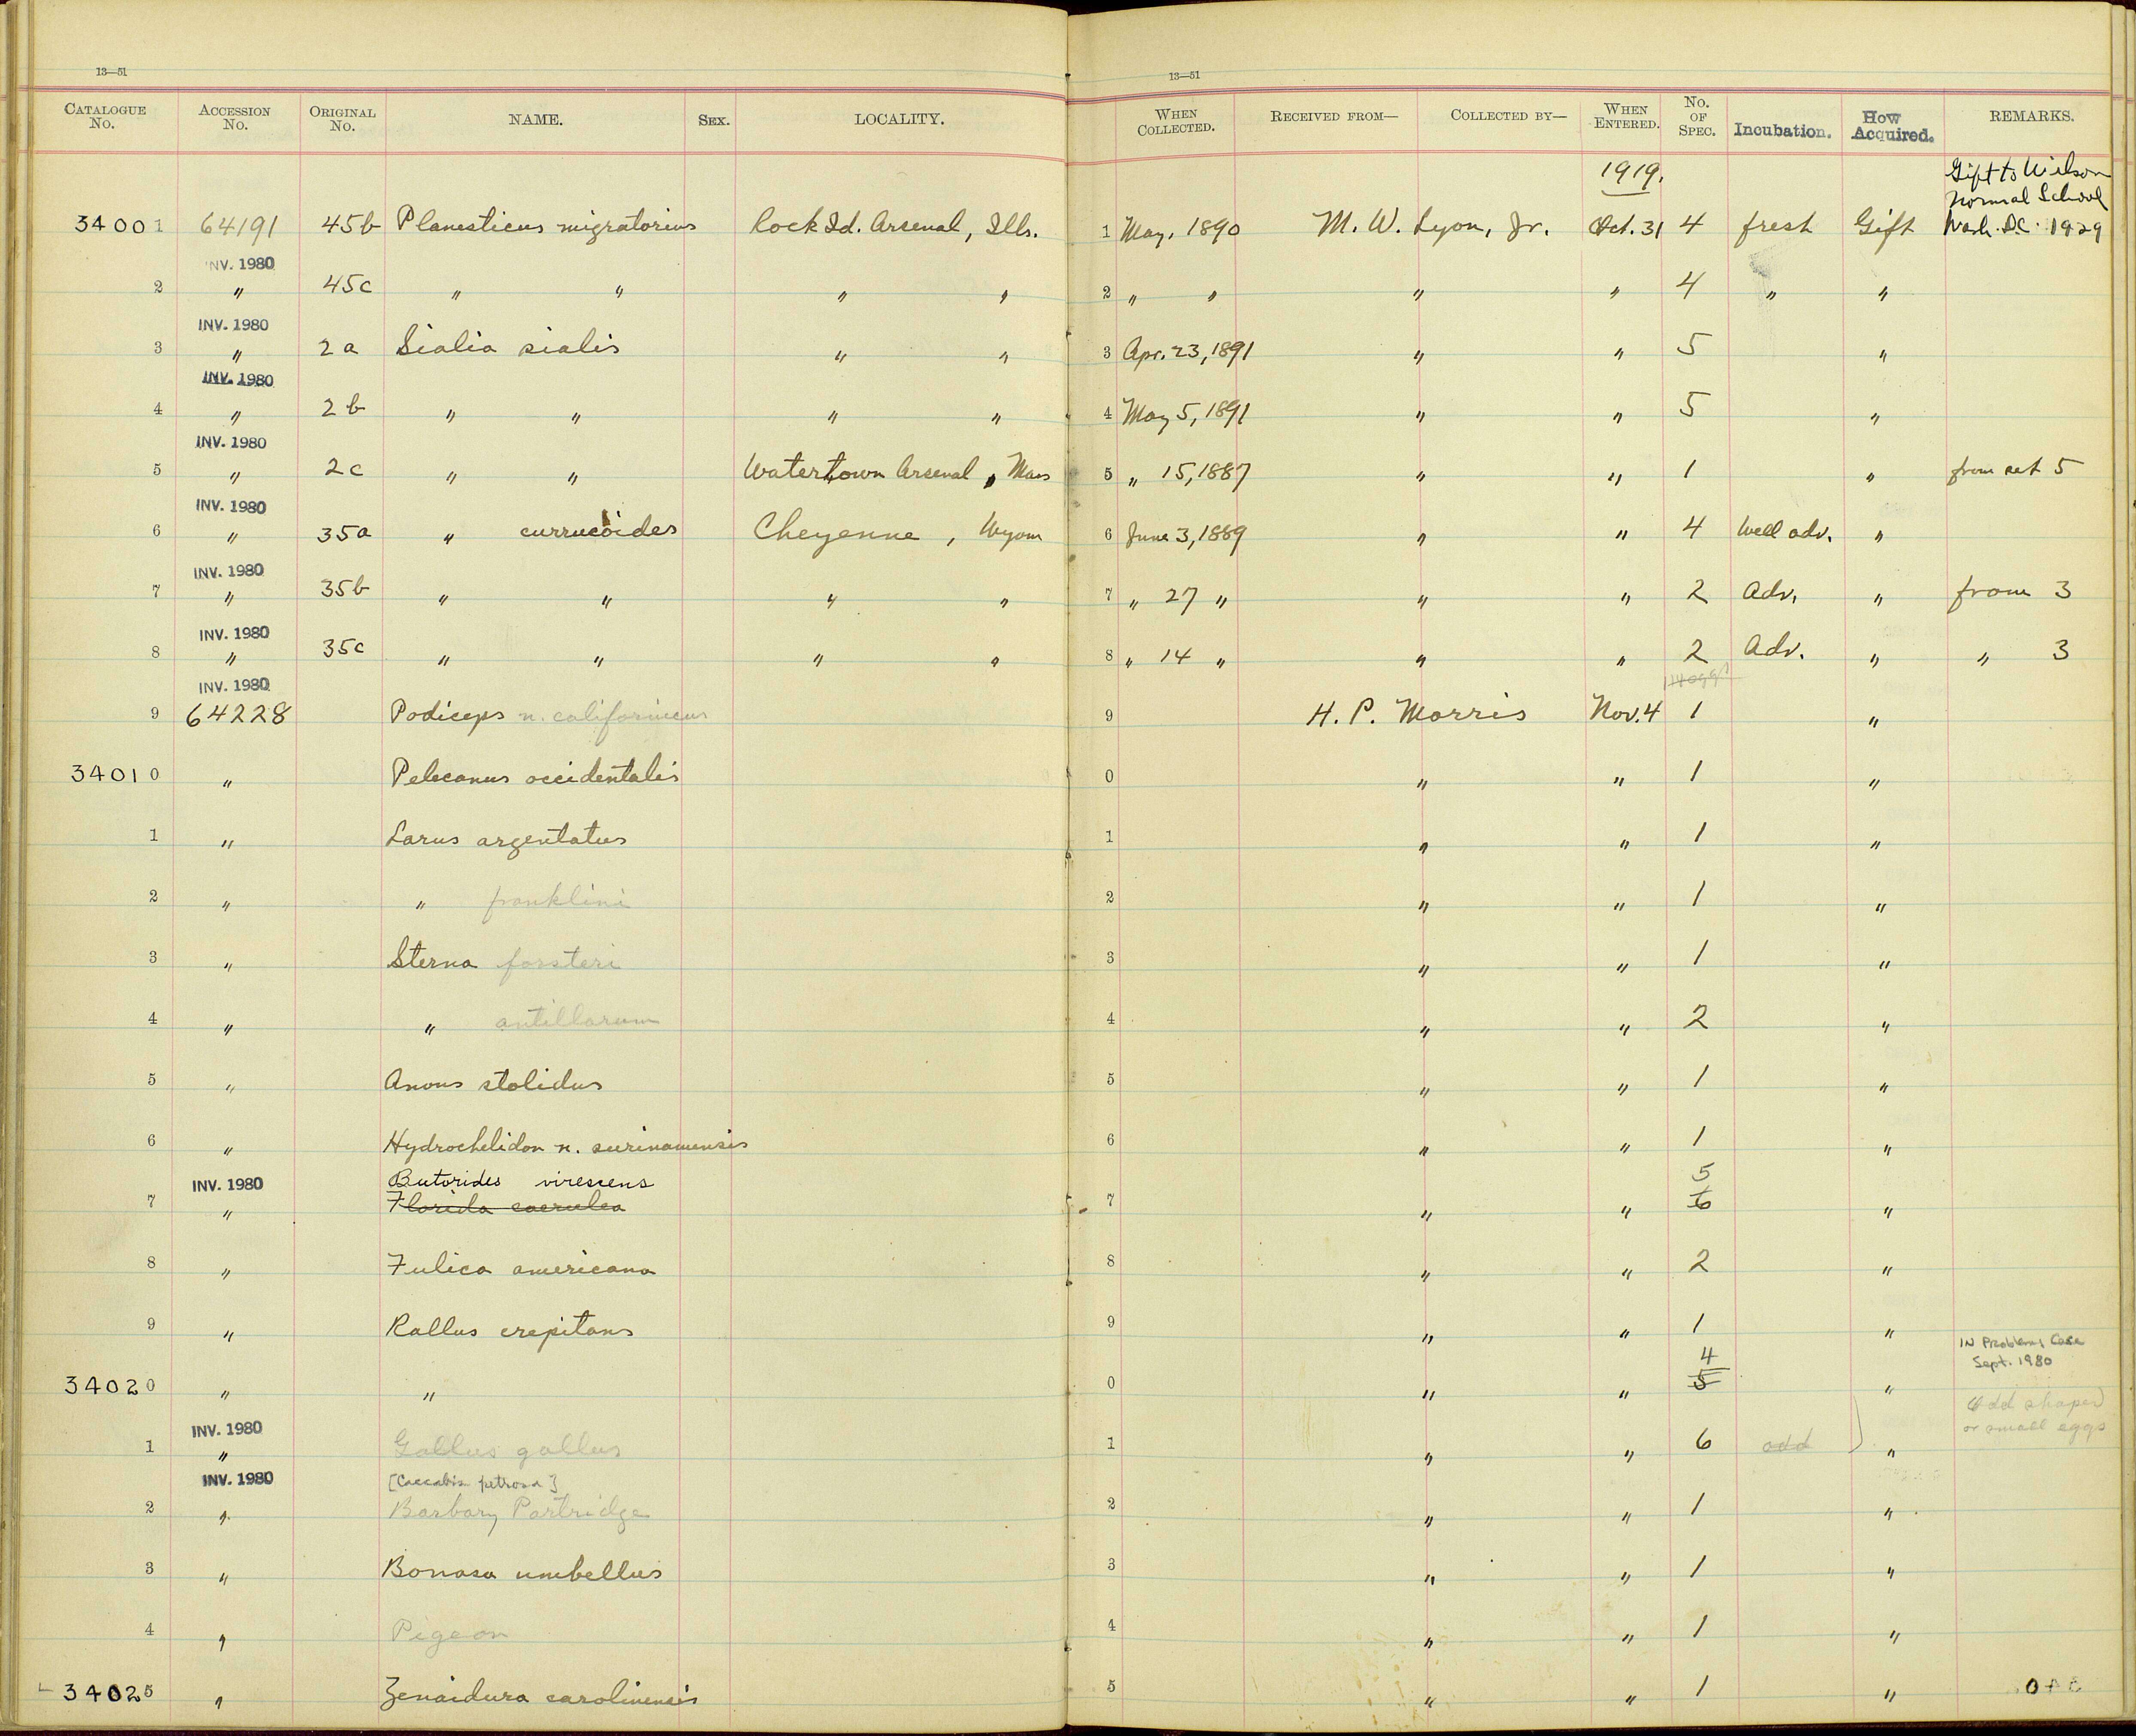 13—51
13—51
CATALOGUE No. ACCESSION No. ORIGINAL No. NAME. SEX. LOCALITY. WHEN COLLECTED. RECEIVED FROM— COLLECTED BY— WHEN ENTERED. No. OF SPEC. Incubation. How Acquired. REMARKS.
1919. Gift to Wilson
Normal School
34001 64191 45b Planesticus migratorius Rock Id. Arsenal, Ills. 1 May. 1890 M. W. Lyon, Jr. Oct. 31 4 fresh Gift Wash. D.C. 1929
INV. 1980
2 " 45c " " " " 2 " " " " 4 " "
INV. 1980
3 " 2a Sialia sialis " " 3 Apr. 23, 1891 " " 5 "
INV. 1980
4 " 2b " " " " 4 May 5, 1891 " " 5 "
INV. 1980
5 " 2c " " Watertown Arsenal, Mass 5 " 15, 1887 " " 1 " from set 5
INV. 1980
6 " 35a " currucoides Cheyenne, Wyom 6 June 3, 1889 " " 4 Well adv. "
INV. 1980
7 " 35b " " " " 7 " 27 " " " 2 Adv. " from 3
INV. 1980
8 " 35c " " " " 8 " 14 " " " 2 Adv. " " 3
INV. 1980
9 64228 Podiceps n. californicus 9 H. P. Morris Nov. 4 1 "
34010 " Pelecanus occidentalis 0 " " 1 "
1 " Larus argentatus 1 " " 1 "
2 " " franklini 2 " " 1 "
3 " Sterna forsteri 3 " " 1 "
4 " " antillarum 4 " " 2 "
5 " Anous stolidus 5 " " 1 "
6 " Hydrochelidon n. surinamensis 6 " " 1 "
INV. 1980 Butorides virescens 5
7 " Florida caerulea 7 " " 6 "
8 " Fulica americana 8 " " 2 "
9 " Rallus crepitans 9 " " 1 "
4 IN Problems Case
Sept. 1980
34020 " " 0 " " 5 "
INV. 1980 Odd shaped
or small eggs
1 " Gallus gallus 1 " " 6 odd "
INV. 1980 [Caccabis petrosa]
2 " Barbary Partridge 2 " " 1 "
3 " Bonasa umbellus 3 " " 1 "
4 " Pigeon 4 " " 1 "
34025 " Zenaidura carolinensis 5 " " 1 "